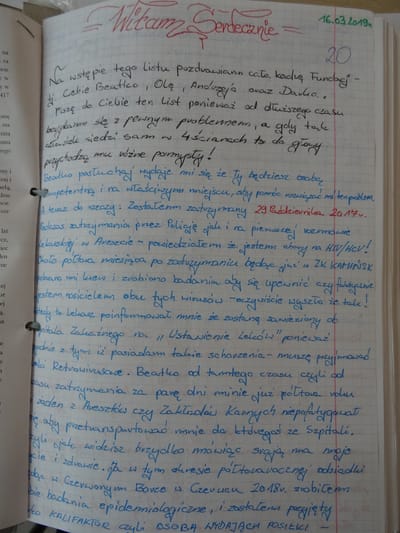 Witam Serdecznie
16.03.2019r.
20
Na wstępie tego listu pozdrawiam całą kadrę Fundacji -
Ciebie Beatko, Olę, Andrzeja oraz Darka.
Piszę do Ciebie ten list ponieważ od dłuższego czasu
się z pewnym problemem, a gdy tak
siedzi sam w 4 ścianach to do głowy
przychodzą mu różne pomysły!
Beatko posłuchaj wydaje mi się że Ty będziesz osobą
kompetentną i na właściwym miejscu, aby pomóc rozwiązać mi ten problem.
A teraz do rzeczy: Zostałem zatrzymany 29 Października 2017r.
Podczas zatrzymania przez Policję jak i na pierwszej rozmowie
lekarskiej w Areszcie - powiedziałem że jestem chory na HIV/HCV!
Około półtora miesiąca po zatrzymaniu będąc już w ZK KAMIŃSK
pobrano mi krew i zrobiono badania aby się upewnić czy faktycznie
jestem nosicielem obu tych wirusów - oczywiście wyszło że tak!
to lekarz poinformował mnie że zostanę zawieziony do
Szpitala Zakaźnego na "Ustawienie Leków" ponieważ
z tym iż posiadam takie schorzenia - muszę przyjmować
Retrowirusowe. Beatko od tamtego czasu czyli od
czasu zatrzymania za parę dni minie już półtora roku
żaden z Aresztów czy Zakładów Karnych niepofatygował
się aby przetransportować mnie do któregoś ze Szpitali.
czyli jak widzisz brzydko mówiąc srają na moje
życie i zdrowie. Ja w tym okresie półtorarocznej odsiadki
będąc w Czerwonym Borze w Czerwcu 2018r. zrobiłem
badania epidemiologiczne, i zostałem przyjęty
jako KALIFAKTOR czyli OSOBA WYDAJĄCA POSIŁKI -